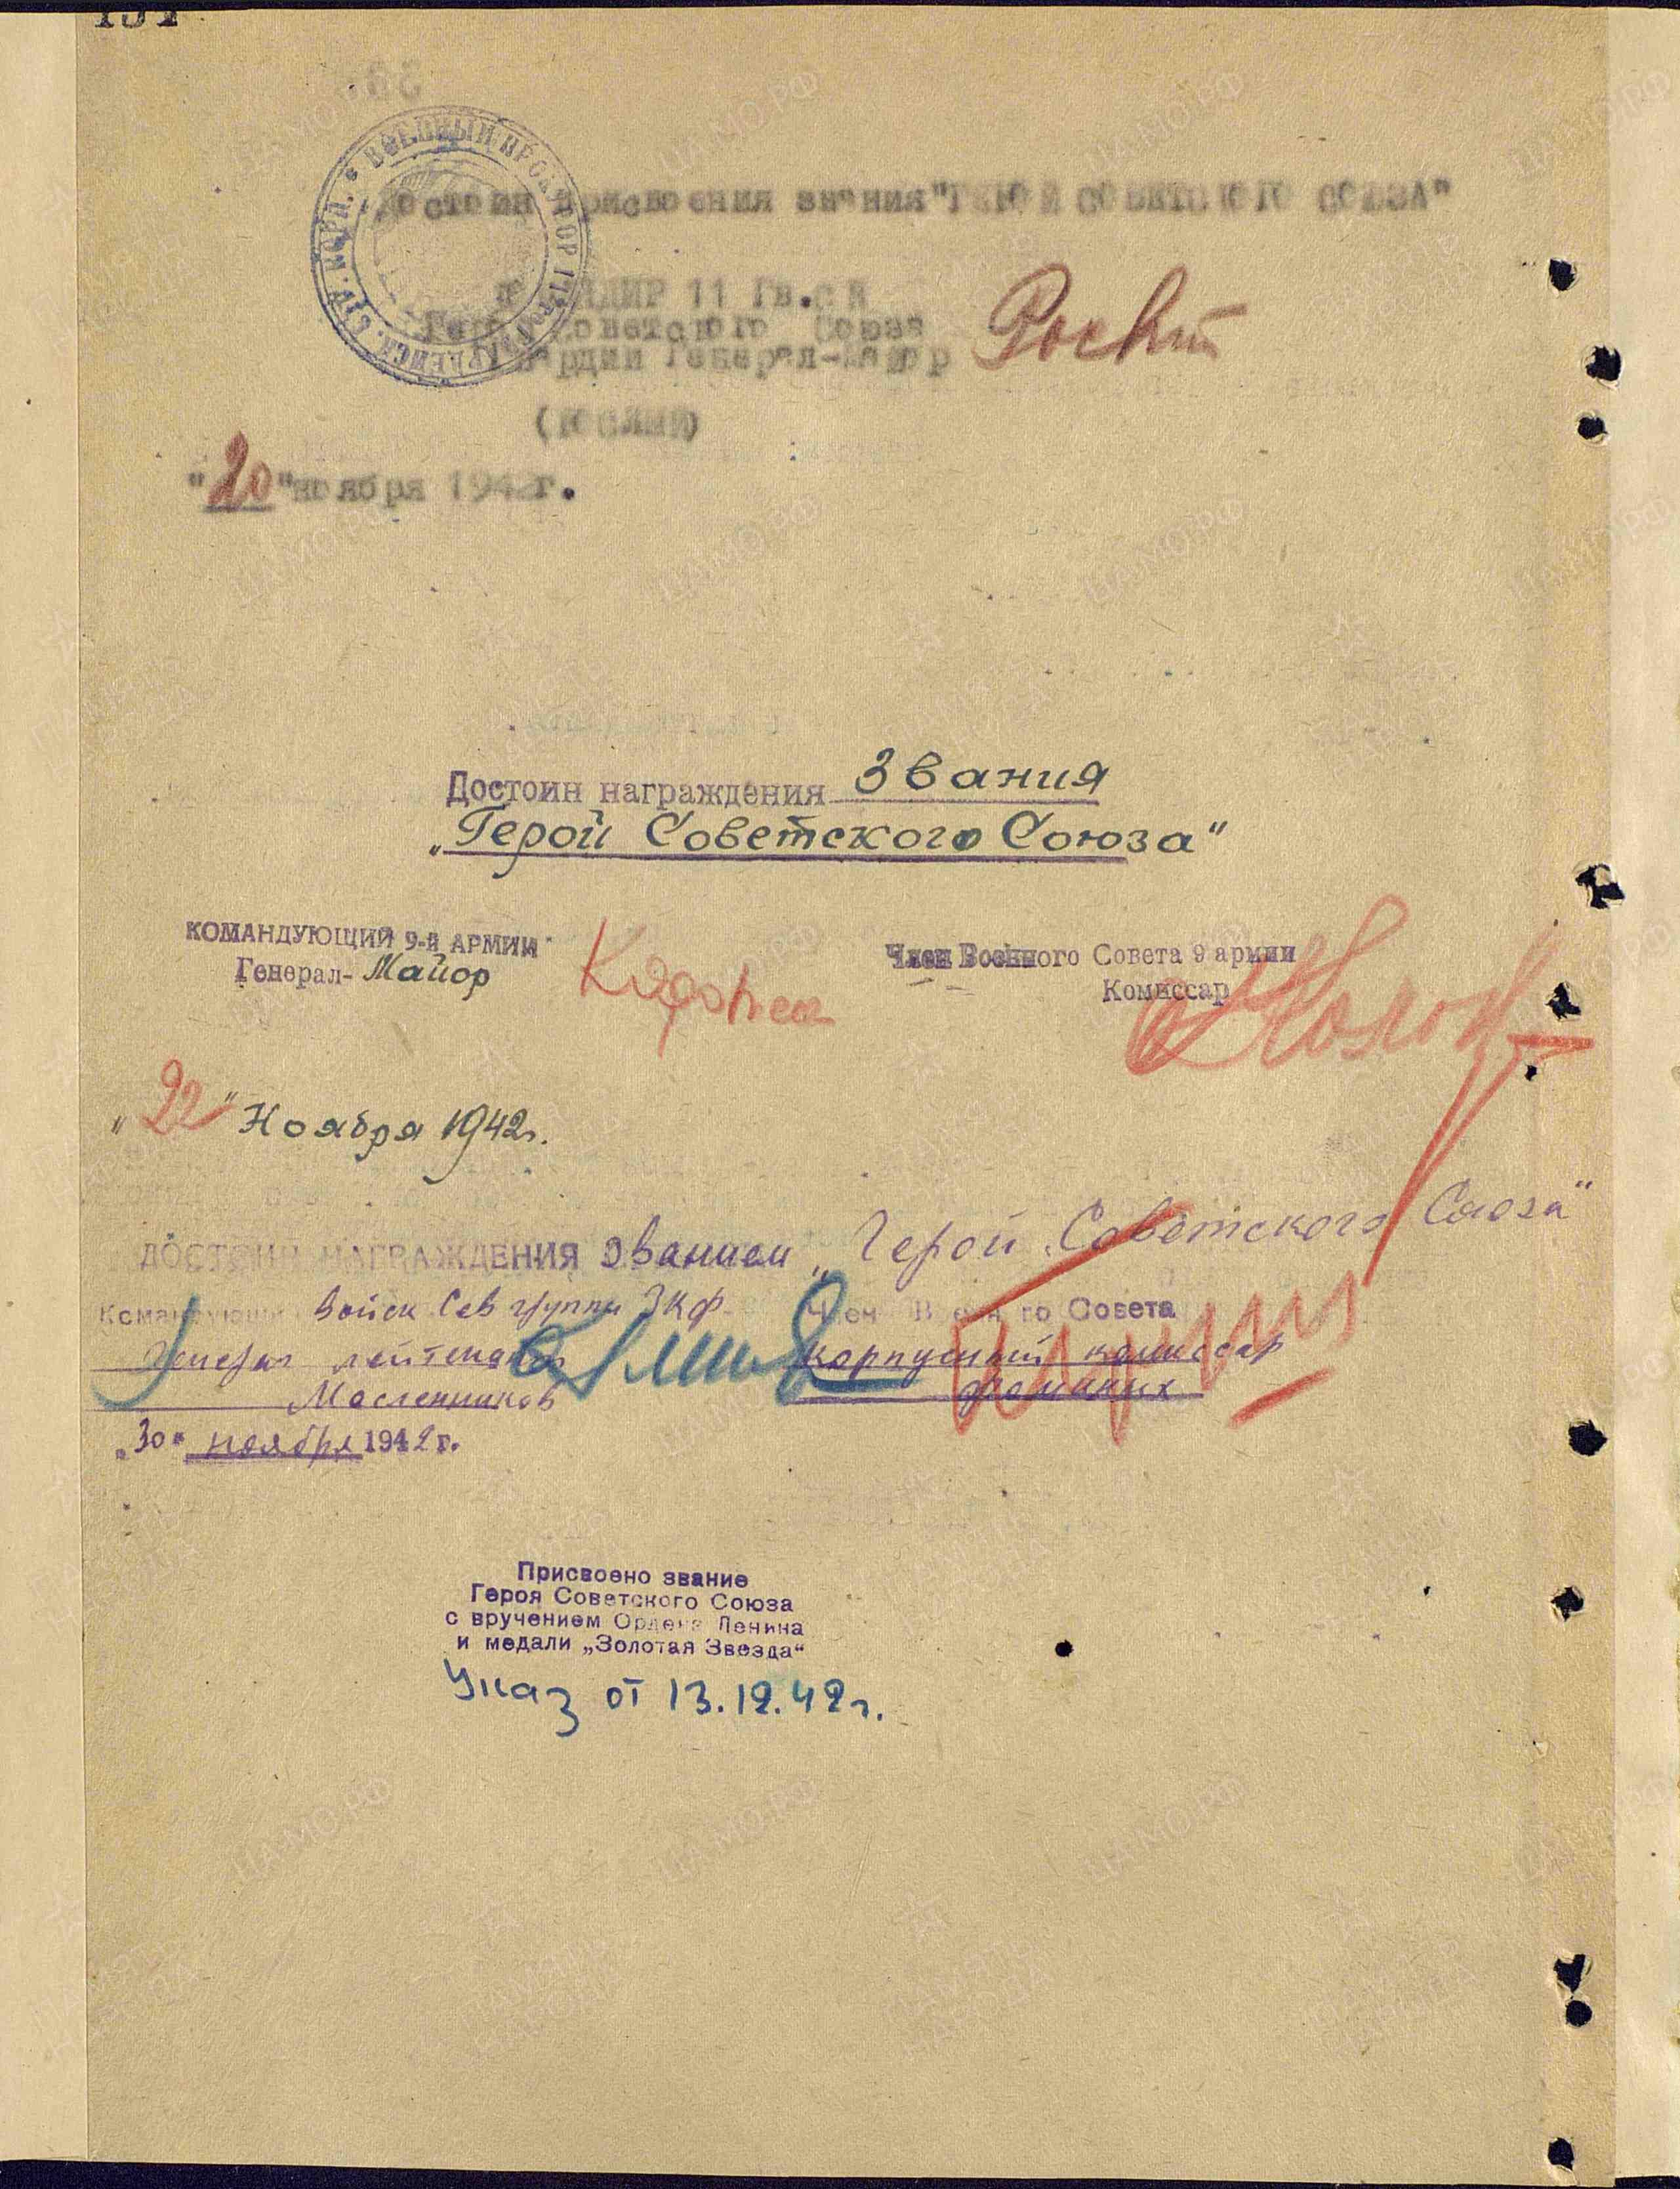 Достоин присвоения звания "ГЕРОЙ СОВЕТСКОГО СОЮЗА"
ВОЕННЫЙ ПРОКУРОР
11 Гв.СК
Советского Союза
Гвардии Генерал-Майор
"20" ноября 1942г.
Достоин награждения Звания
„Герой Советского Союза"
КОМАНДУЮЩИЙ 9-й АРМИИ
Генерал-Майор
Член Военного Совета 9 армии
Комиссар
"22" Ноября 1942г.
ДОСТОИН НАГРАЖДЕНИЯ званием „Герой Советского Союза"
Командующий Войск Сев группы ЗКФ
Член Военного Совета
Генерал лейтенант
корпусной комиссар
Масленников
Фоминых
„30" ноября 1942г.
Присвоено звание
Героя Советского Союза
с вручением Ордена Ленина
и медали „Золотая Звезда"
Указ от 13.12.42г.
ЦАМО.РФ
ПАМЯТЬ НАРОДА